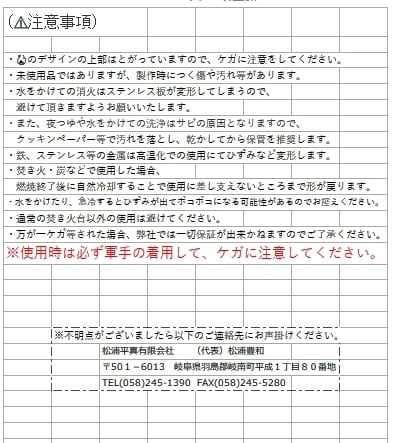 (⚠注意事項)
・🔥のデザインの上部はとがっていますので、ケガに注意をしてください。
・未使用品ではありますが、製作時につく傷や汚れ等があります。
・水をかけての消火はステンレス板が変形してしまうので、
避けて頂きますようお願いいたします。
・また、夜つゆや水をかけての洗浄はサビの原因となりますので、
クッキンペーパー等で汚れを落とし、乾かしてから保管を推奨します。
・鉄、ステンレス等の金属は高温化での使用にてひずみなど変形します。
・焚き火・炭などで使用した場合、
燃焼終了後に自然冷却することで使用に差し支えないところまで形が戻ります。
・水をかけたり、急冷するとひずみが出てボコボコになる可能性があるのでお控えください。
・通常の焚き火台以外の使用は避けてください。
・万が一ケガ等された場合、弊社では一切保証が出来かねますのでご了承ください。
※使用時は必ず軍手の着用して、ケガに注意してください。
※不明点がございましたら以下のご連絡先にお声掛けください。
松浦平真有限会社 (代表)松浦豊和
〒501-6013 岐阜県羽島郡岐南町平成1丁目80番地
TEL(058)245-1390 FAX(058)245-5280